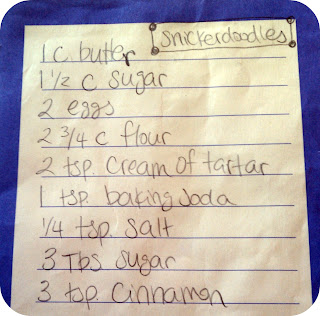 Snickerdoodles
1 c. butter
1 1/2 c sugar
2 eggs
2 3/4 c flour
2 tsp. Cream of tartar
1 tsp. baking soda
1/4 tsp. salt
3 Tbs sugar
3 tsp. Cinnamon